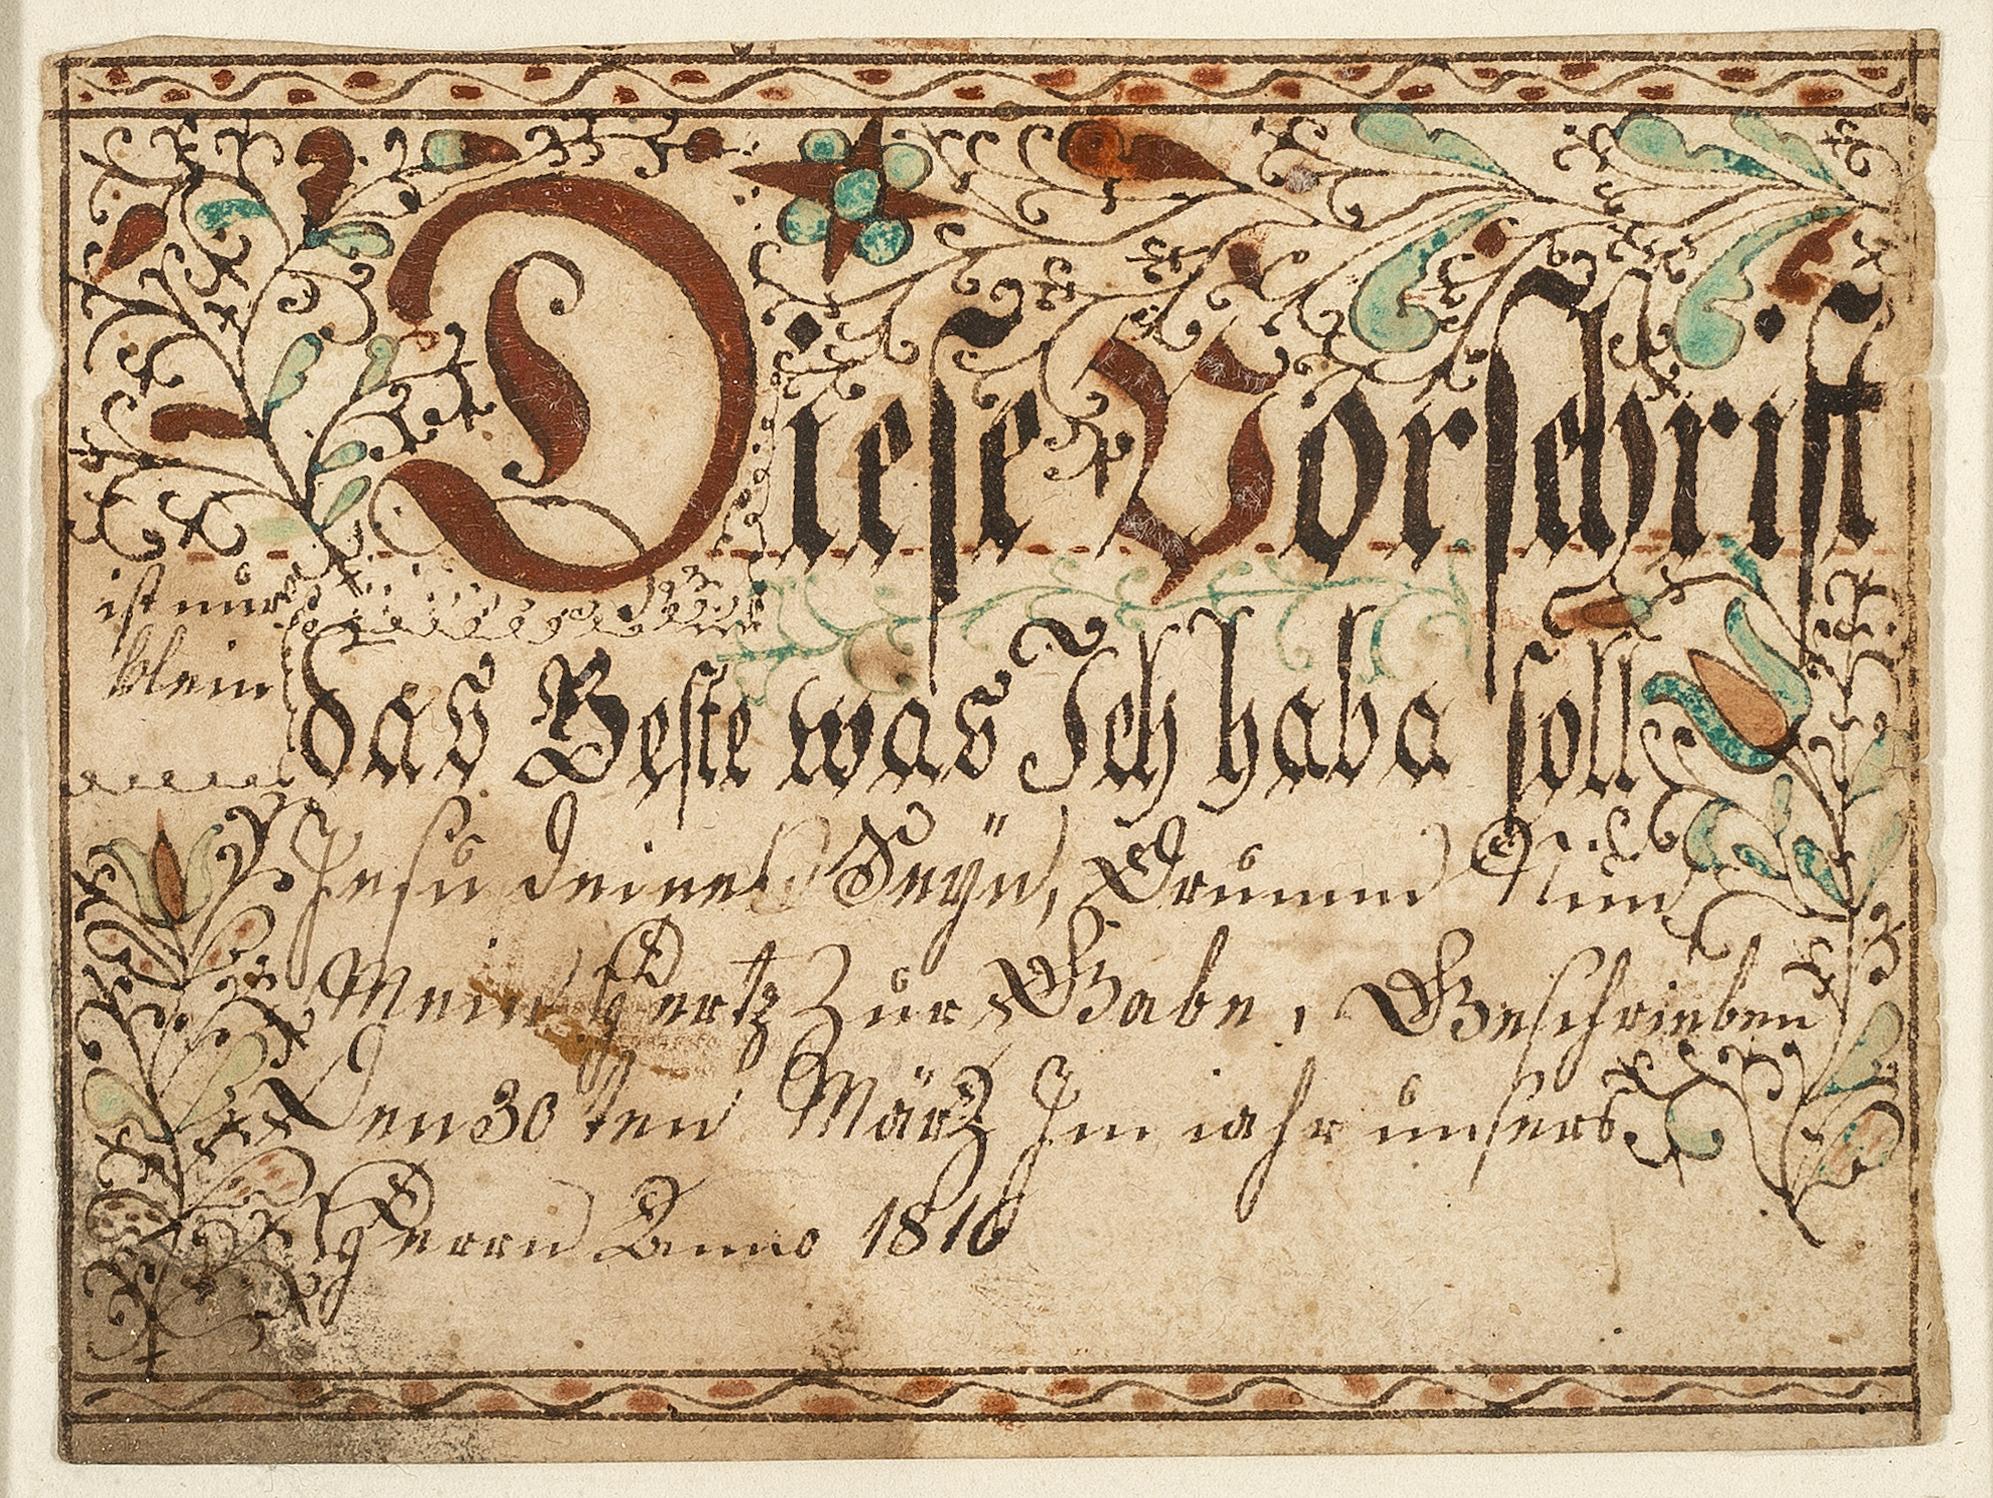 Diese Vorschrift
ist nur
klein
das Beste was Ich haba soll
Jesu deines Seÿn, Drumm Nun
Mein Hertz Zur Gabe, Geschrieben
Den 30ten März Im iahr unsers
Herrn Anno 1816